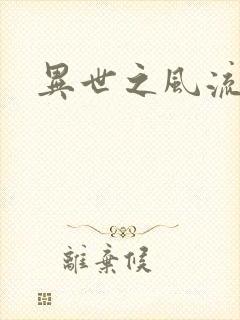 異世之風流
離棄候